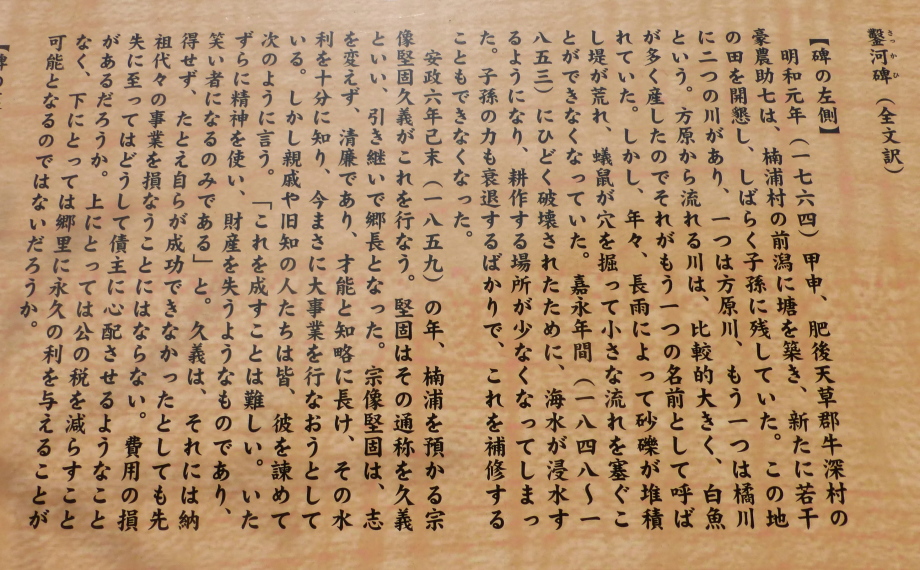 鑿河碑（全文訳）
さっかひ
【碑の左側】
明和元年（一七六四）甲申、肥後天草郡牛深村の
豪農助七は、楠浦村の前潟に塘を築き、新たに若干
の田を開懇し、しばらく子孫に残していた。この地
に二つの川があり、一つは方原川、もう一つは橘川
という。方原から流れる川は、比較的大きく、白魚
が多く産したのでそれがもう一つの名前として呼ば
れていた。しかし、年々、長雨によって砂礫が堆積
し堤が荒れ、蟻鼠が穴を掘って小さな流れを塞ぐこ
とができなくなっていた。嘉永年間（一八四八～一
八五三）にひどく破壊されたために、海水が浸水す
るようになり、耕作する場所が少なくなってしまっ
た。子孫の力も衰退するばかりで、これを補修する
こともできなくなった。
安政六年己末（一八五九）の年、楠浦を預かる宗
像堅固久義がこれを行なう。堅固はその通称を久義
といい、引き継いで郷長となった。宗像堅固は、志
を変えず、清廉であり、才能と知略に長け、その水
利を十分に知り、今まさに大事業を行なおうとして
いる。しかし親戚や旧知の人たちは皆、彼を諫めて
次のように言う。「これを成すことは難しい。いた
ずらに精神を使い、財産を失うようなものであり、
笑い者になるのみである」と。久義は、それには納
得せず、たとえ自らが成功できなかったとしても先
祖代々の事業を損なうことにはならない。費用の損
失に至ってはどうして債主に心配させるようなこと
があるだろうか。上にとっては公の税を減らすこと
なく、下にとっては郷里に永久の利を与えることが
可能となるのではないだろうか。